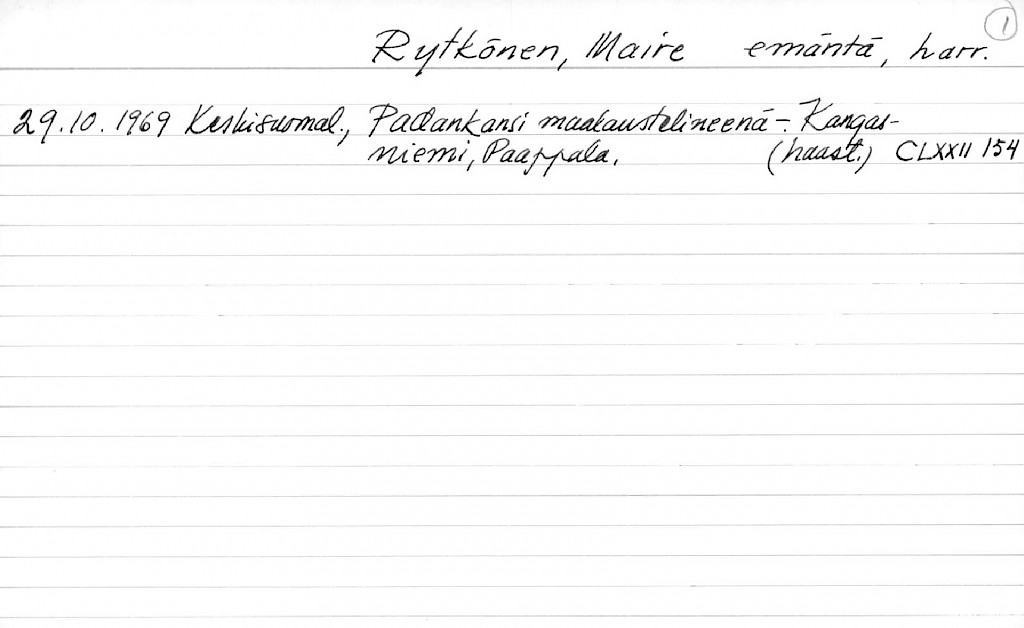 1
Rytkönen, Maire emäntä, harr.
29.10.1969 Keskisuomal., Padankansi maalaustelineenä -. Kangas-
niemi, Paappala. (haast.) CLXXII 154